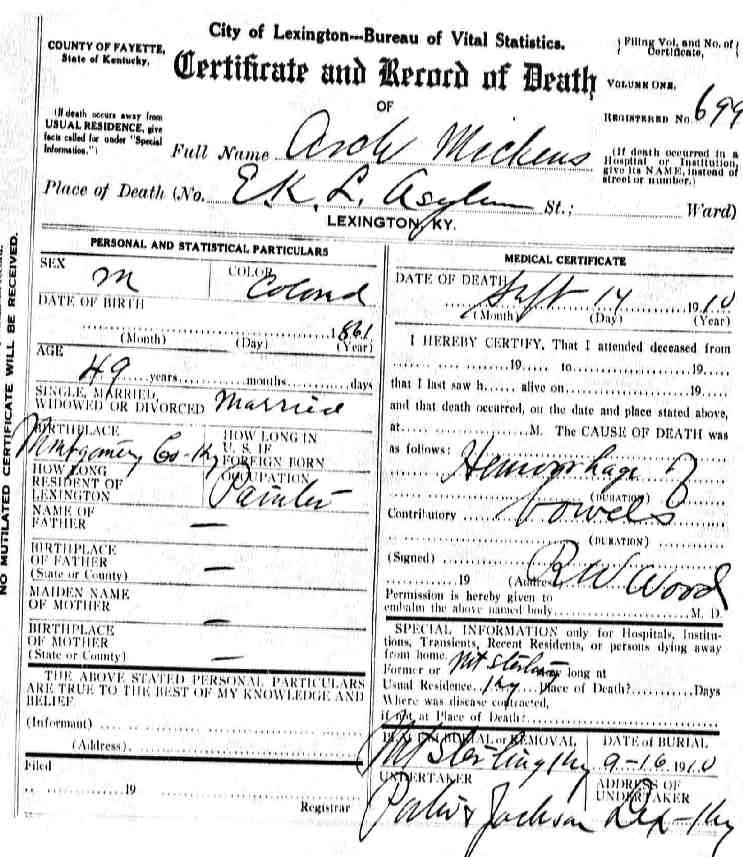 City of Lexington--Bureau of Vital Statistics.
COUNTY OF FAYETTE,
State of Kentucky.
Certificate and Record of Death
OF
{Filing Vol. and No. of}
Certificate,
VOLUME ONE,
REGISTERED No. 699
(If death occurs away from
USUAL RESIDENCE, give
facts called for under "Special
Information.")
Full Name Arch Mickens
(If death occurred in a
Hospital or Institution,
give its NAME, instead of
street or number.)
Place of Death (No. E. K. L. Asylum St.; Ward)
LEXINGTON, KY.
NO MUTILATED CERTIFICATE WILL BE RECEIVED.
PERSONAL AND STATISTICAL PARTICULARS
SEX M COLOR Colored
DATE OF BIRTH
1861
(Month) (Day) (Year)
AGE
49 years months days
SINGLE, MARRIED,
WIDOWED OR DIVORCED Married
BIRTHPLACE
Montgomery Co - Ky
HOW LONG IN
U. S. IF
FOREIGN BORN
HOW LONG
RESIDENT OF
LEXINGTON
OCCUPATION
Painter
NAME OF
FATHER —
BIRTHPLACE
OF FATHER —
(State or County)
MAIDEN NAME
OF MOTHER —
BIRTHPLACE
OF MOTHER —
(State or County)
THE ABOVE STATED PERSONAL PARTICULARS
ARE TRUE TO THE BEST OF MY KNOWLEDGE AND
BELIEF
(Informant)
(Address)
Filed
19
Registrar
MEDICAL CERTIFICATE
DATE OF DEATH
Sept 14 1910
(Month) (Day) (Year)
I HEREBY CERTIFY, That I attended deceased from
19 to 19
that I last saw h alive on 19
and that death occurred, on the date and place stated above,
at M. The CAUSE OF DEATH was
as follows: Hemorrhage
(DURATION)
Contributory bowels
(DURATION)
(Signed) R W Wood
19 (Address)
Permission is hereby given to
embalm the above named body M. D.
SPECIAL INFORMATION only for Hospitals, Institu-
tions, Transients, Recent Residents, or persons dying away
from home.
Former or Mt Sterling long at
Usual Residence Ky Place of Death? Days
Where was disease contracted,
if not at Place of Death?
PLACE OF BURIAL or REMOVAL
Mt Sterling Ky
DATE of BURIAL
9-16 1910
UNDERTAKER
Porter & Jackson
ADDRESS OF
UNDERTAKER
Lex - Ky